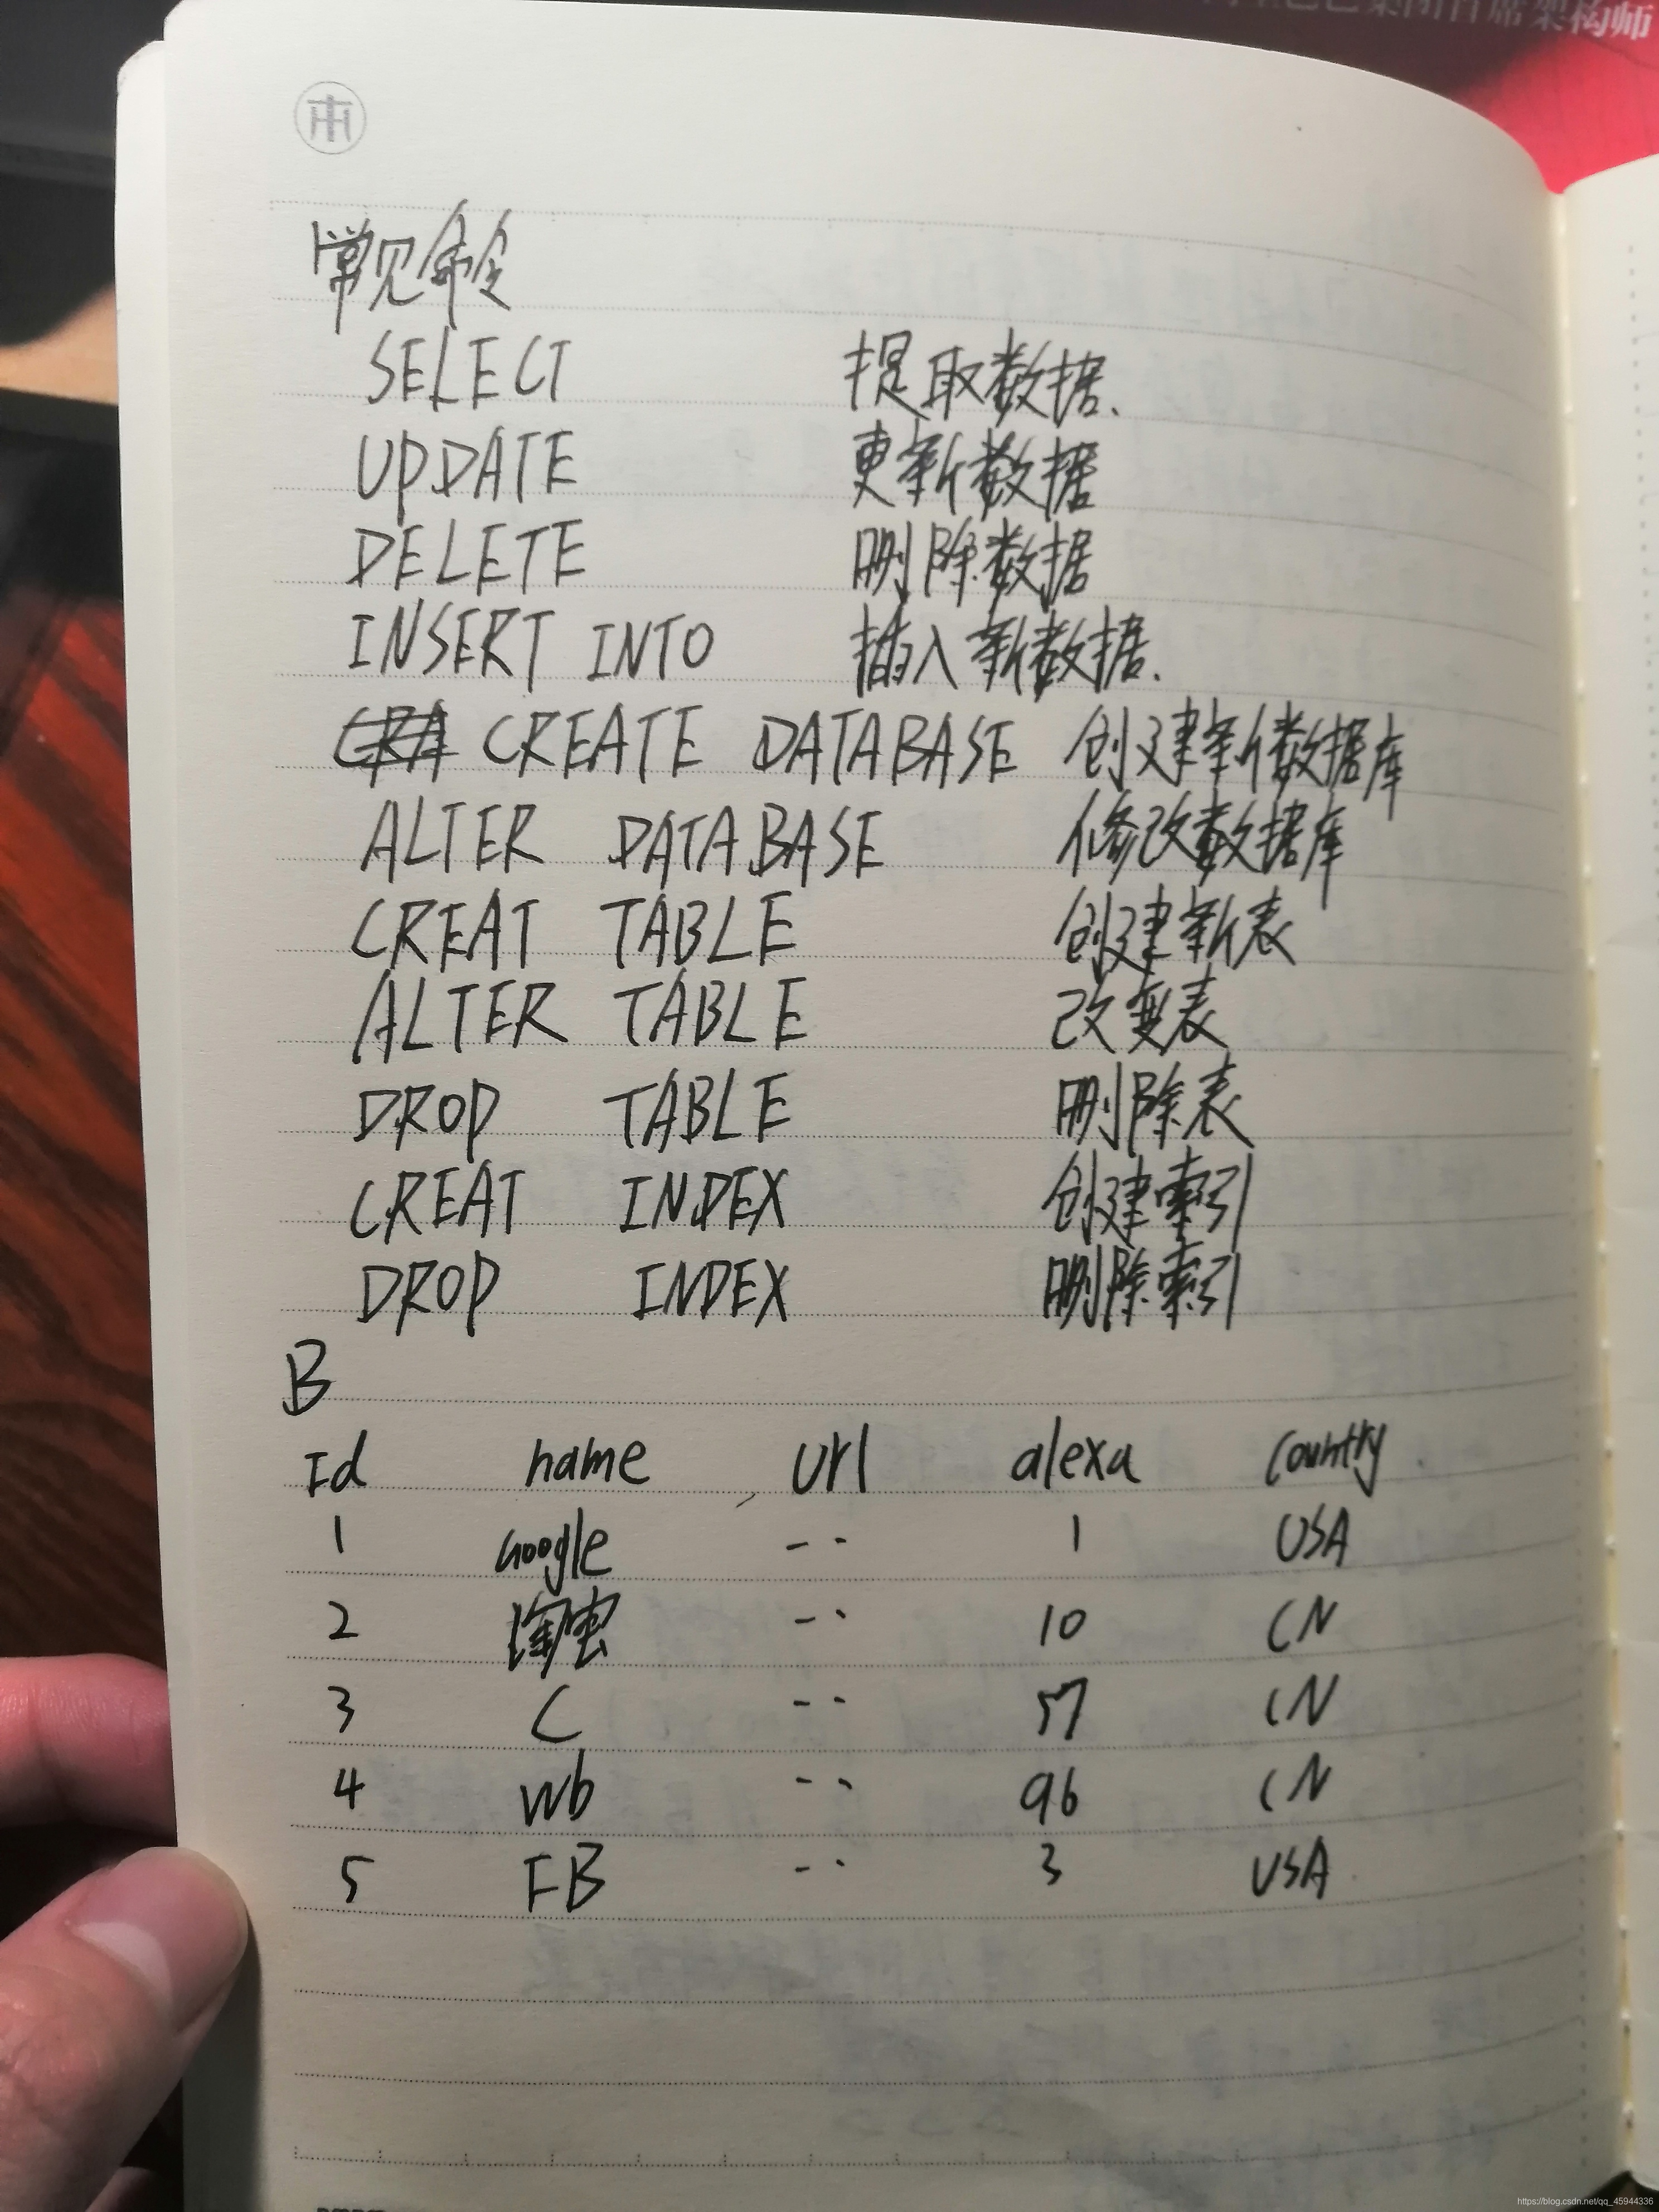 集团首席架构师
常见命令
SELECT 提取数据.
UPDATE 更新数据
DELETE 删除数据
INSERT INTO 插入新数据.
CREATE DATABASE 创建新数据库
ALTER DATABASE 修改数据库
CREAT TABLE 创建新表
ALTER TABLE 改变表
DROP TABLE 删除表
CREAT INDEX 创建索引
DROP INDEX 删除索引
B
Id name url alexa country
1 Google -- 1 USA
2 淘宝 -- 10 CN
3 C -- 57 CN
4 wb -- 96 CN
5 FB -- 3 USA
https://blog.csdn.net/qq_45944336